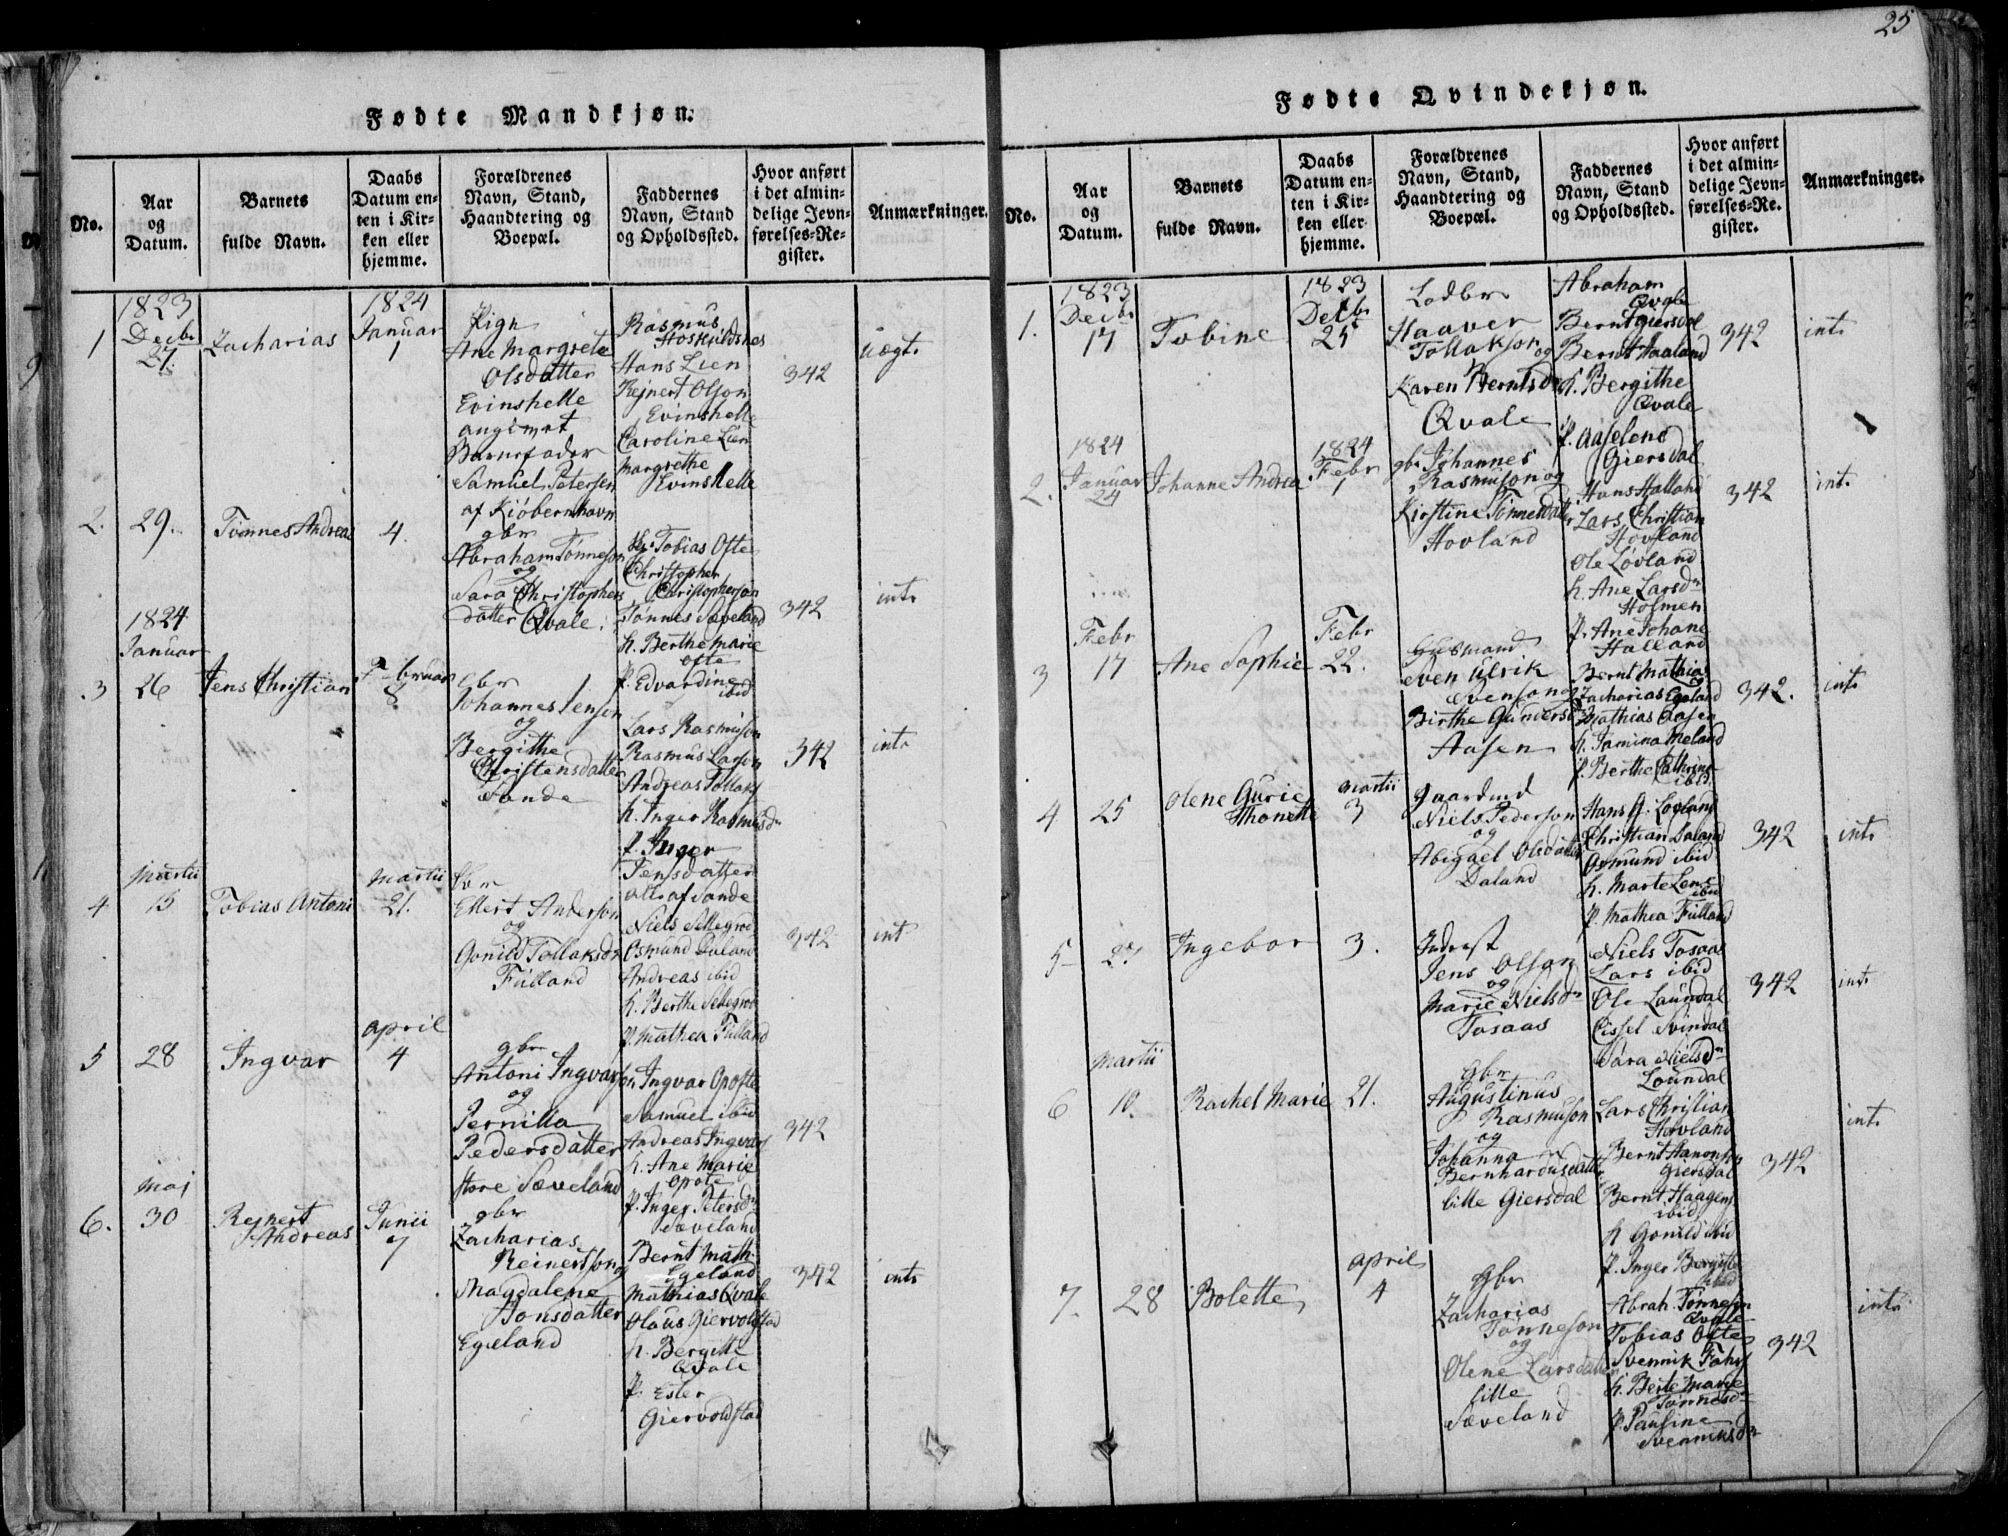 25
Fødte Mandkjøn.
No.
Aar
og
Datum.
Barnets
fulde Navn.
Daabs
Datum en-
ten i Kir-
ken eller
hjemme.
Forældrenes
Navn, Stand,
Haandtering og
Boepæl.
Faddernes
Navn, Stand
og Opholdssted.
Hvor anført
i det almin-
delige Jevn-
førelses-Re-
gister.
Anmærkninger.
1
1823
Decbr
27.
Zacharias
1824
Januar
1
Pige
Ane Margrete
Olsdatter
Evinshelle
angivet
Barnefader
Samuel Petersen
af Kiöbernhavn
Rasmus
Hoskuldsnes
Hans Lien
Rejnert Olson
Evinshelle
Caroline Lien
Margrethe
Evinshelle
342
uægte
2.
29.
Tønnes Andreas
4.
gbr
Abraham Tønneson
og
Sara Christophers
datter Qvale
Tobias Ofte
Christopher
Christopherson
Tønnes Sæveland
k. Berthe Marie
Ofte
p. Edvardine
ibid
342
int.
3
1824
Januar
26
Jens Christian
Februar
8
gbr
Johannes Jensen
og
Bergithe
Christensdatter
Sande
Lars Rasmuson
Rasmus Larson
Andreas Tollaks
k. Inger Rasmusd
p. Inger
Jensdatter
alle af Sande
342
int.
4
Martii
15
Tobias Antoni
Martii
21.
Ellert Anderson
og
Gonild Tollaksdr
Fuland
Niels Sellegrod
Osmund Daland
Andreas ibid
k. Berthe Sellegrod
p. Mathea Fuland
342
int
5
28
Ingvar
April
4
gbr
Antoni Ingvarson
og
Pernilla
Pedersdatter
Store Sæveland
Ingvar Opofte
Samuel ibid
Andreas Ingvars
k. Ane Marie
Opofte
p. Inger Petersdr
Sæveland
342
6.
Maj
30
Rejnert
Andreas
Junii
7
gbr
Zacharias
Reinertson og
Magdalene
Tonsdatter
Egeland
Bernt Math.
Egeland
Mathias Qvale
Olaus Giervoldstad
k. Bergitte
Qvale
p. Ester
Giervoldstad
342
int.
Fødte Qvindekjøn.
No.
Aar
og
Datum.
Barnets
fulde Navn.
Daabs
Datum en-
ten i Kir-
ken eller
hjemme.
Forældrenes
Navn, Stand,
Haandtering og
Boepæl.
Faddernes
Navn, Stand
og Opholdssted.
Hvor anført
i det almin-
delige Jevn-
førelses-Re-
gister.
Anmærkninger.
1.
1823
Decbr
17
Tobine
1823
Decbr
25
Haaver
Tollakson og
Karen Berntsdr
Qvale
Abraham
Qvale
Bernt Giersdal
Bernt Haaland
k. Bergithe
Qvale
p. Aaselene
Giersdal
342
int.
2.
1824
Januar
24
Johanne Andrea
1824
Febr
1
gbr Johannes
Rasmuson og
Kirstine Tönnesdatter
Hovland
Hans Halland
Lars Christian
Hovland
Ole Lövland
k. Ane Larsdr
Holmen
p. Ane Johane
Halland
342
int.
3
Febr
17
Ane Sophie
Febr
22.
Huusmand
Sven Ulrik
Svenson og
Birthe Gundersdr
Aasen
Bernt Mathias
Zacharias Egeland
Mathias Aasen
k. Jamina Meland
p. Berthe Cathrine
ibid
342.
int.
4
25
Olene Gurie
Thonette
Martii
3
Gaardmd
Niels Pederson
og
Abigael Olsdatter
Daland
Hans G. Lovland
Christian Daland
Osmund ibid
k. Marte Lene
ibid
p. Mathea Fuland
342
int.
5
27
Ingebor
3.
Inderst
Jens Olson
og
Marie Nielsdr
Tosaas
Niels Tosaas
Lars ibid
Ole Laundal
Cissel Svindal
Sara Nielsdr
Loundal
342
int.
6
Martii
10.
Rachel Marie
21.
Gbr
Augustinus
Rasmuson
og
Johanna
Bernhardusdatter
lille Giersdal
Lars Christian
Hovland
Bernt Hanonson
Giersdal
Bernt Haagens
ibid
k Gonild ibid
p. Inger Bergitte
ibid
342
int.
7.
28
Bolette
April
4
Gbr
Zacharias
Tönneson
og
Olene Larsdatter
lille
Sæveland
Abrah. Tönneson
Qvale
Tobias Ofte
Svennik
k. Berte Marie
Tönnesdr
p. Pauline
Svenniksdr
342
int.